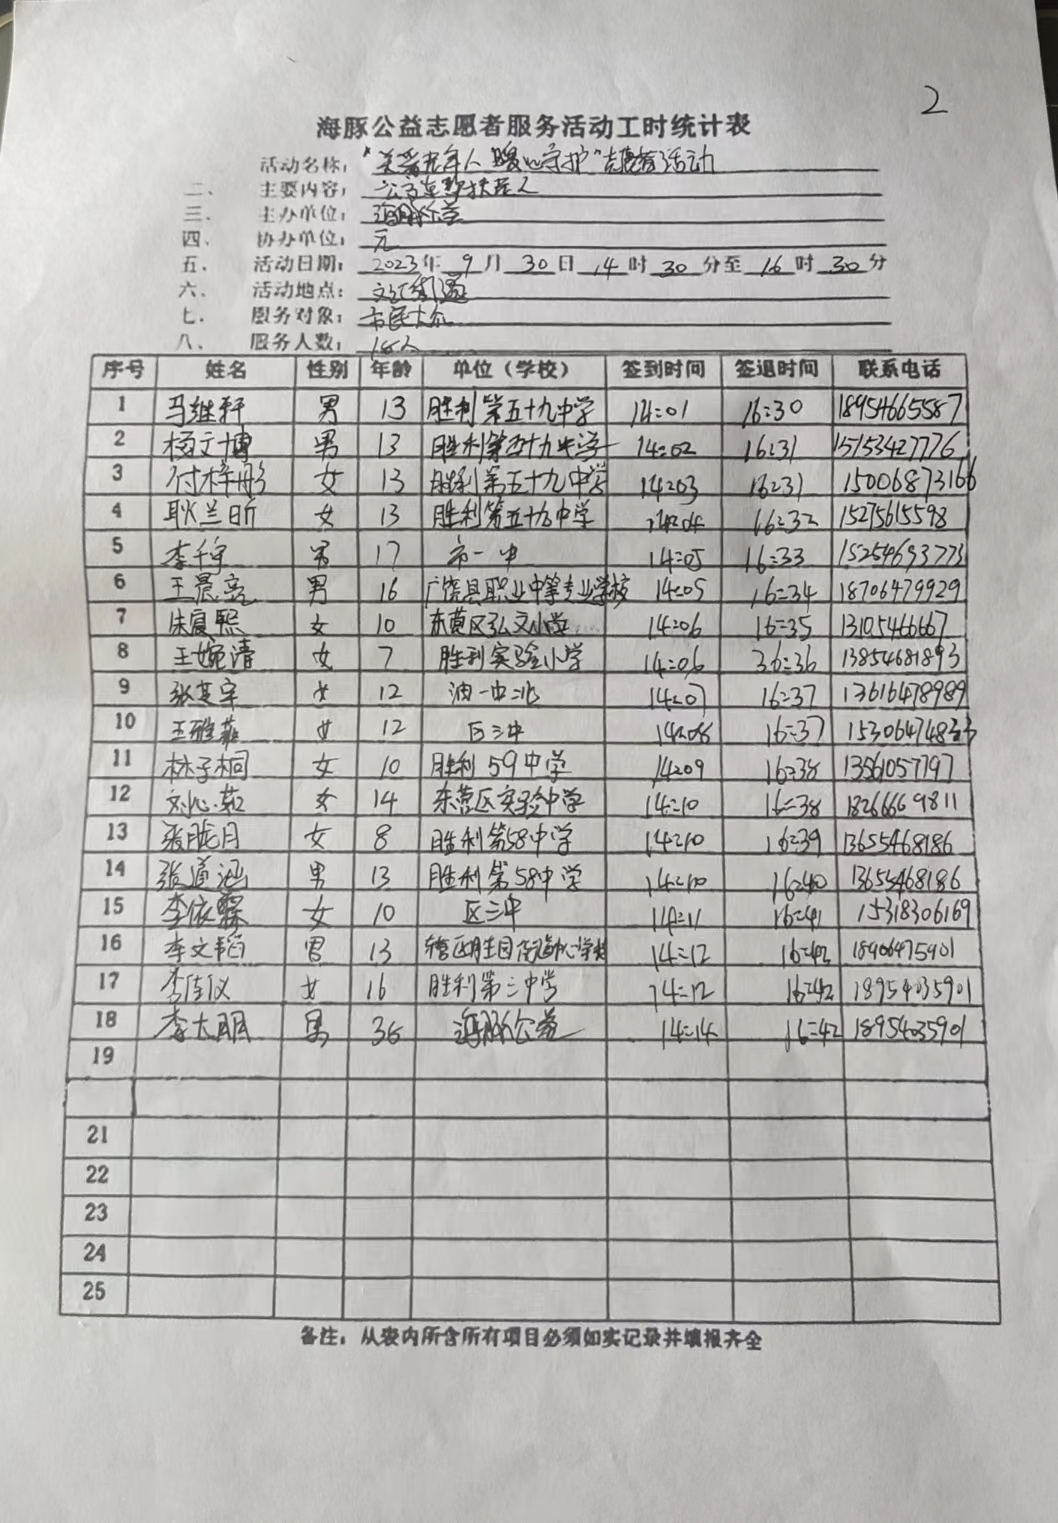 2
海豚公益志愿者服务活动工时统计表
活动名称：“关爱老年人 暖心守护”志愿者活动
二、 主要内容：
三、 主办单位：海豚公益
四、 协办单位：无
五、 活动日期：2023年 9月 30日 14时 30分至 16时 30分
六、 活动地点：文汇街道
七、 服务对象：市民大众
八、 服务人数：18人
序号 姓名 性别 年龄 单位（学校） 签到时间 签退时间 联系电话
1 马继轩 男 13 胜利第五十九中学 14:01 16:30 18954665587
2 杨文博 男 13 胜利第五十九中学 14:02 16:31 15153427776
3 付梓彤 女 13 胜利第五十九中学 14:03 16:31 15006873166
4 耿兰昕 女 13 胜利第五十九中学 14:04 16:32 15275615598
5 李千宇 男 17 市一中 14:05 16:33 15254693773
6 王晨亮 男 16 广饶县职业中等专业学校 14:05 16:34 18706479929
7 女 10 东营区弘文小学 14:06 16:35 13105466667
8 王婉清 女 7 胜利实验小学 14:06 36:36 13854681893
9 女 12 油一中北 14:07 16:37 13616478989
10 王雅菲 女 12 区三中 14:08 16:37
11 林子桐 女 10 胜利59中学 14:09 16:38 13561057797
12 刘心茹 女 14 东营区实验中学 14:10 16:38 18266669811
13 张胧月 女 8 胜利第58中学 14:10 16:39 13655468186
14 张道涵 男 13 胜利第58中学 14:10 16:40 13655468186
15 李依霖 女 10 区三中 14:11 16:41 15318306169
16 李文韬 男 13 14:12 16:42 18906475901
17 李佳仪 女 16 胜利第三中学 14:12 16:42 18954035901
18 李大鹏 男 36 海豚公益 14:14 16:42 18954035901
19
21
22
23
24
25
备注：从表内所含所有项目必须如实记录并填报齐全